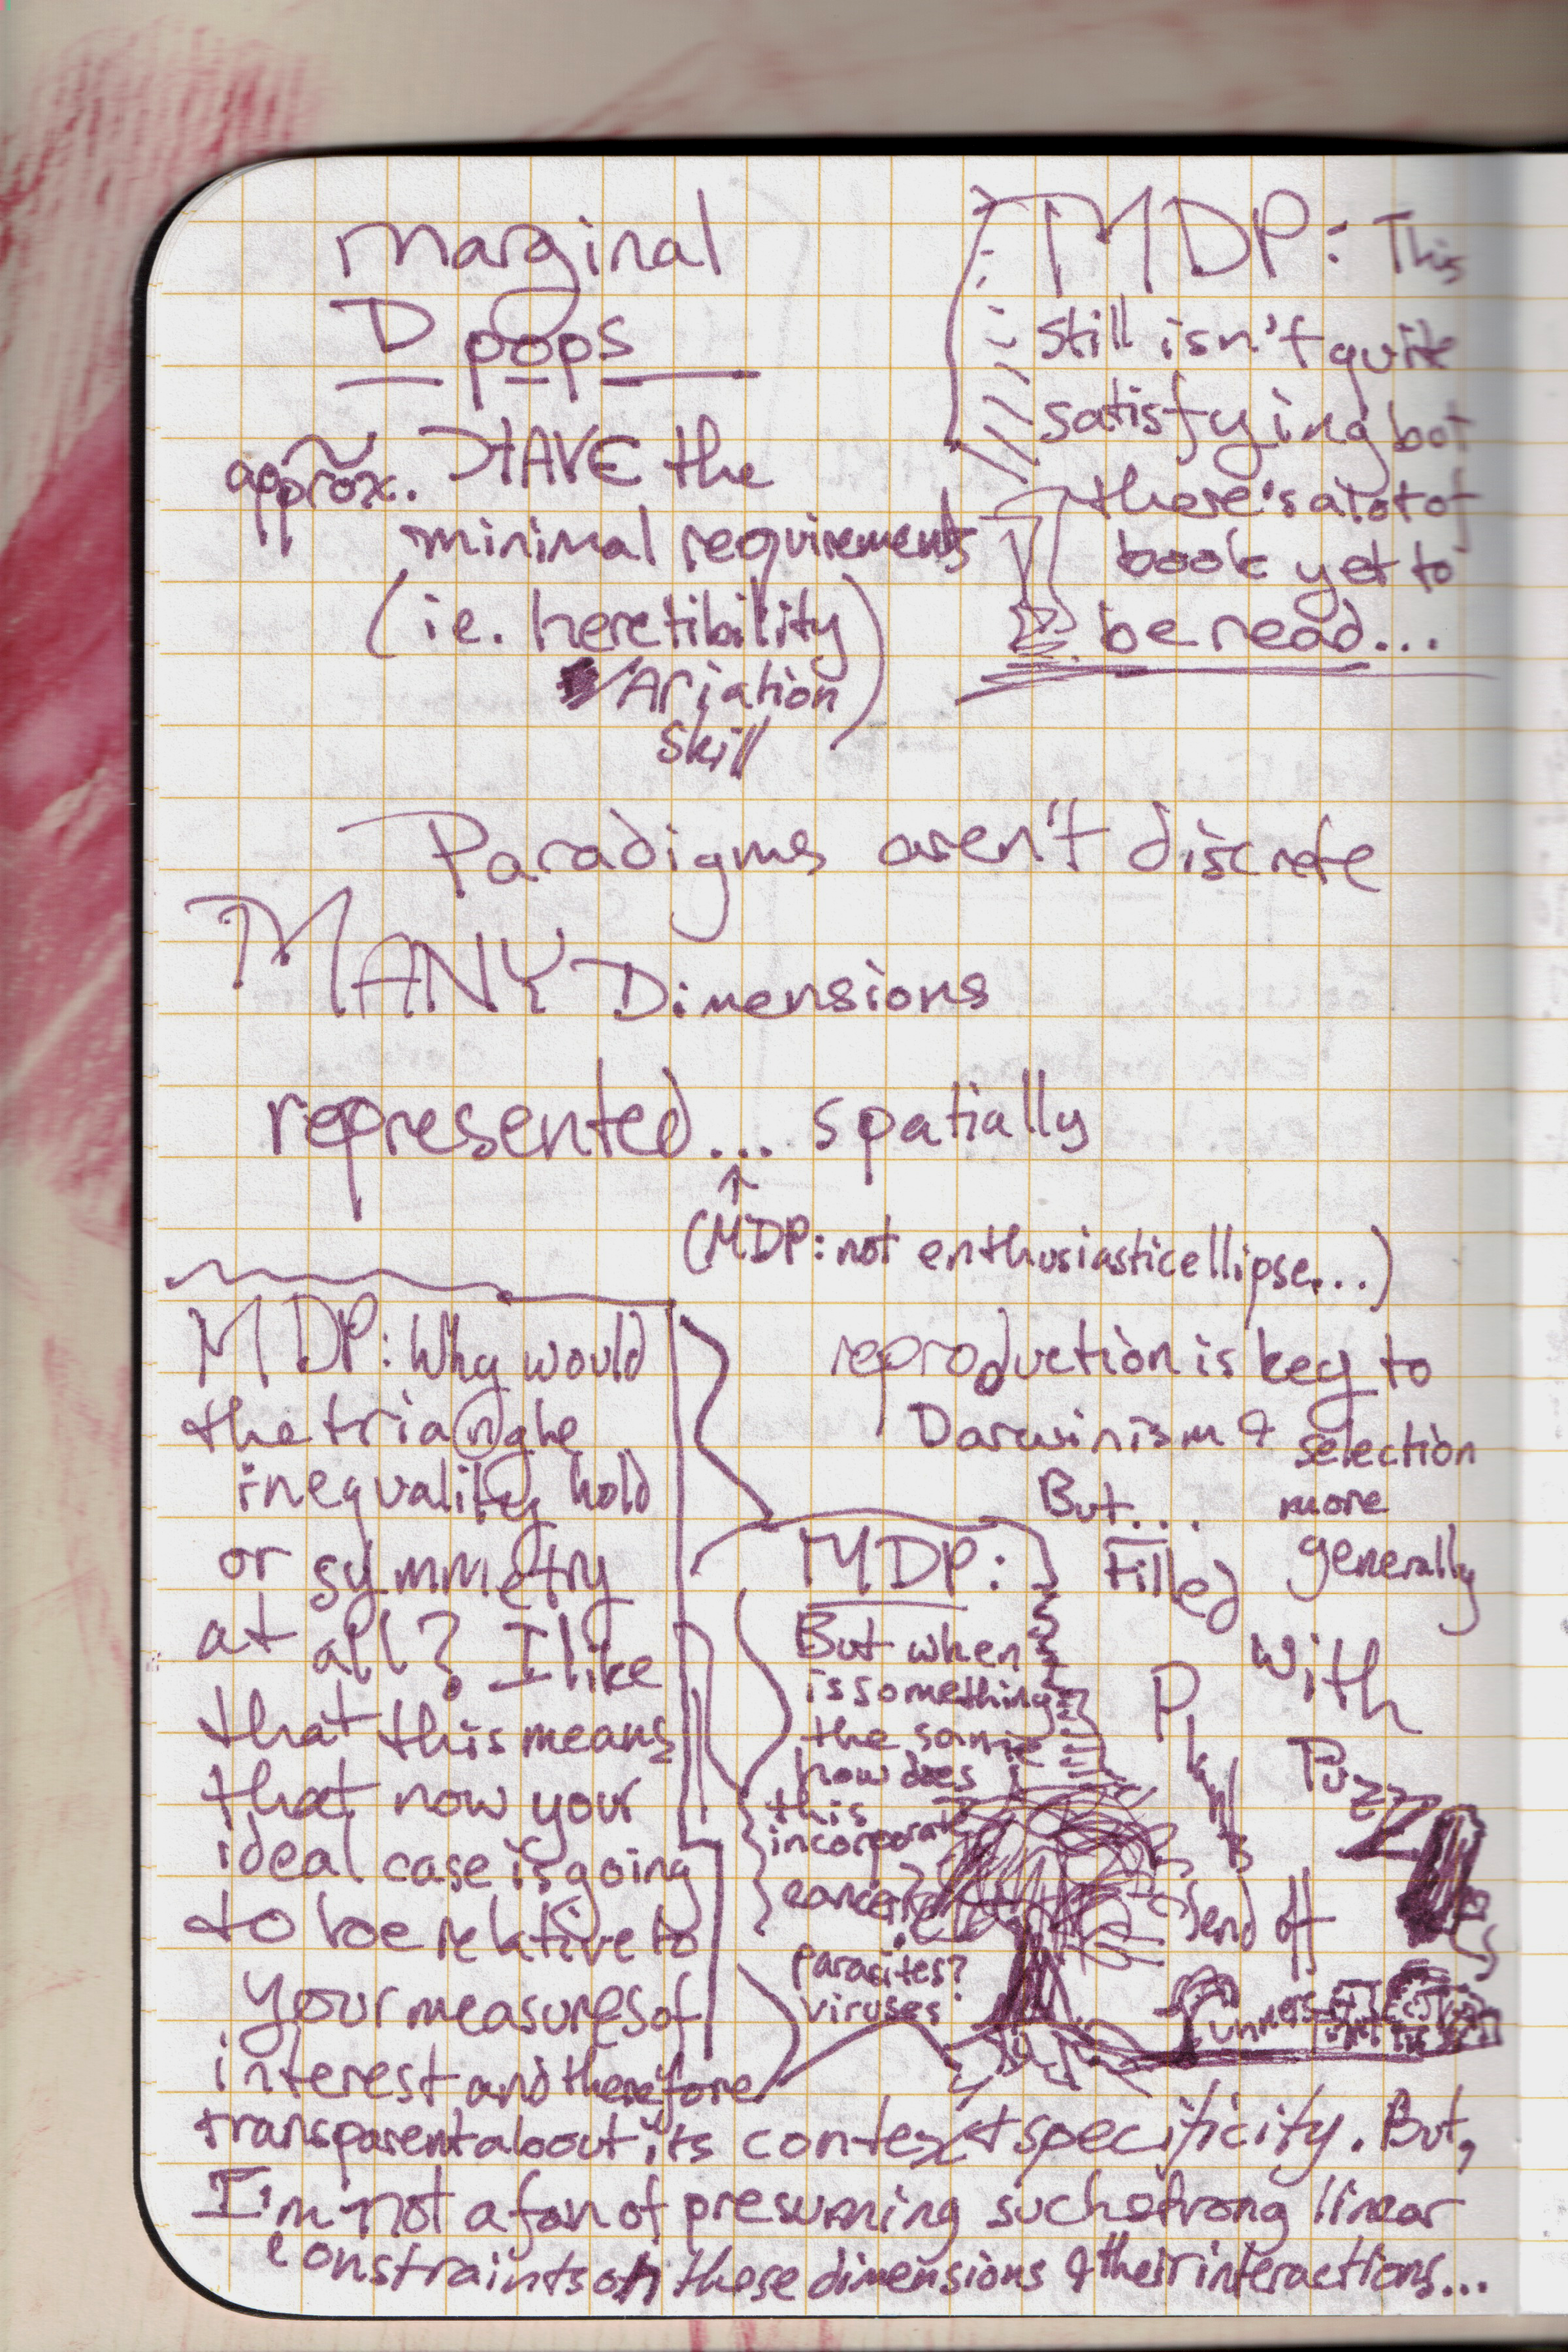 marginal
D pops
approx. HAVE the
minimal requirements
(ie. heretibility
VAriation)
skill
MDP: This
still isn't quite
satisfying but
there's a lot of
book yet to
be read...
Paradigms aren't discrete
MANY Dimensions
represented... spatially
↑
(MDP: not enthusiastic ellipse...)
MDP: Why would
the triangle
inequality hold
or symmetry
at all? I like
that this means
that now your
ideal case is going
to be relative to
your measures of
interest and therefore
transparent about its context specificity. But,
I'm not a fan of presuming such strong linear
constraints on these dimensions & their interactions...
reproduction is key to
Darwinism & selection
more
generally
But...
Filled
with
Puzzles
MDP:
But when
is something
the same
how does
this
incorporate
cancer?
parasites?
viruses?